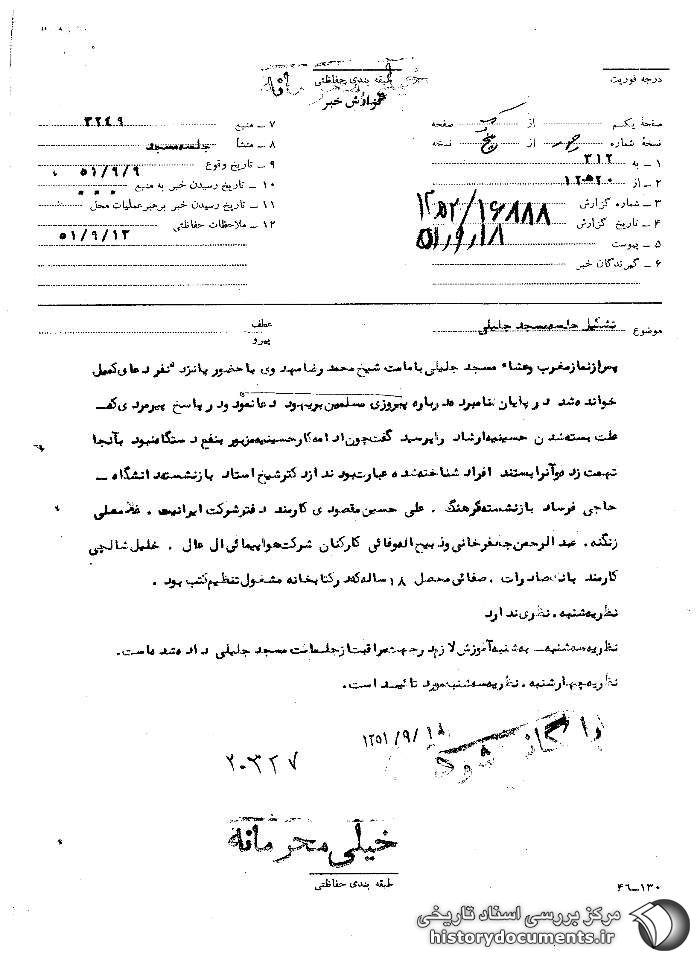 درجه فوریت
طبقه بندی حفاظتی
گزارش خبر
صفحهٔ یکم از یک صفحه
نسخهٔ شماره از پنج نسخه
۱ – به ۳۱۲
۲ – از ۱۲ ه ۲۰
۳ – شماره گزارش ۱۶۸۸۸/
۴ – تاریخ گزارش ۵۱/۹/۱۸
۵ – پیوست
۶ – گیرندگان خبر
۷ – منبع ۳۲۴۹
۸ – منشأ جلسه مسجد
۹ – تاریخ وقوع ۵۱/۹/۹
۱۰ – تاریخ رسیدن خبر به منبع
۱۱ – تاریخ رسیدن خبر برهبر عملیات محل
۱۲ – ملاحظات حفاظتی ۵۱/۹/۱۳
موضوع تشکیل جلسه مسجد جلیلی
عطف
پیرو
پس از نماز مغرب و عشاء مسجد جلیلی بامامت شیخ محمد رضا مهدوی با حضور پانزده نفر دعای کمیل
خوانده شد در پایان نامبرده درباره پیروزی مسلمین بریهود دعا نمود و در پاسخ پیرمردی که
علت بسته شدن حسینیه ارشاد را پرسید گفت چون ادامه کار حسینیه مزبور بنفع دستگاه نبود بآنجا
تهمت زده و آنرا بستند افراد شناخته شده عبارت بودند از دکتر شیخ استاد بازنشسته دانشگاه –
حاجی فرساد بازنشسته فرهنگ . علی حسین مقصودی کارمند دفتر شرکت ایرانیت . غلامعلی
زنگنه . عبدالرحمن جعفرخانی و ذبیح اله وفائی کارکنان شرکت هواپیمائی ال عال . خلیل شالچی
کارمند بانک صادرات . صفائی محصل ۱۸ ساله که در کتابخانه مشغول تنظیم کتب بود .
نظریه شنبه . نظری ندارد
نظریه سه شنبه – به شنبه آموزش لازم در جهت مراقبت از جلسات مسجد جلیلی داده شده است.
نظریه چهارشنبه . نظریه سه شنبه مورد تائید است.
بایگانی شود
۱۳۵۱/۹/۱۸
۲۰۳۲۷
خیلی محرمانه
طبقه بندی حفاظتی
۴۶–۱۳۰
مرکز بررسی اسناد تاریخی
historydocuments.ir